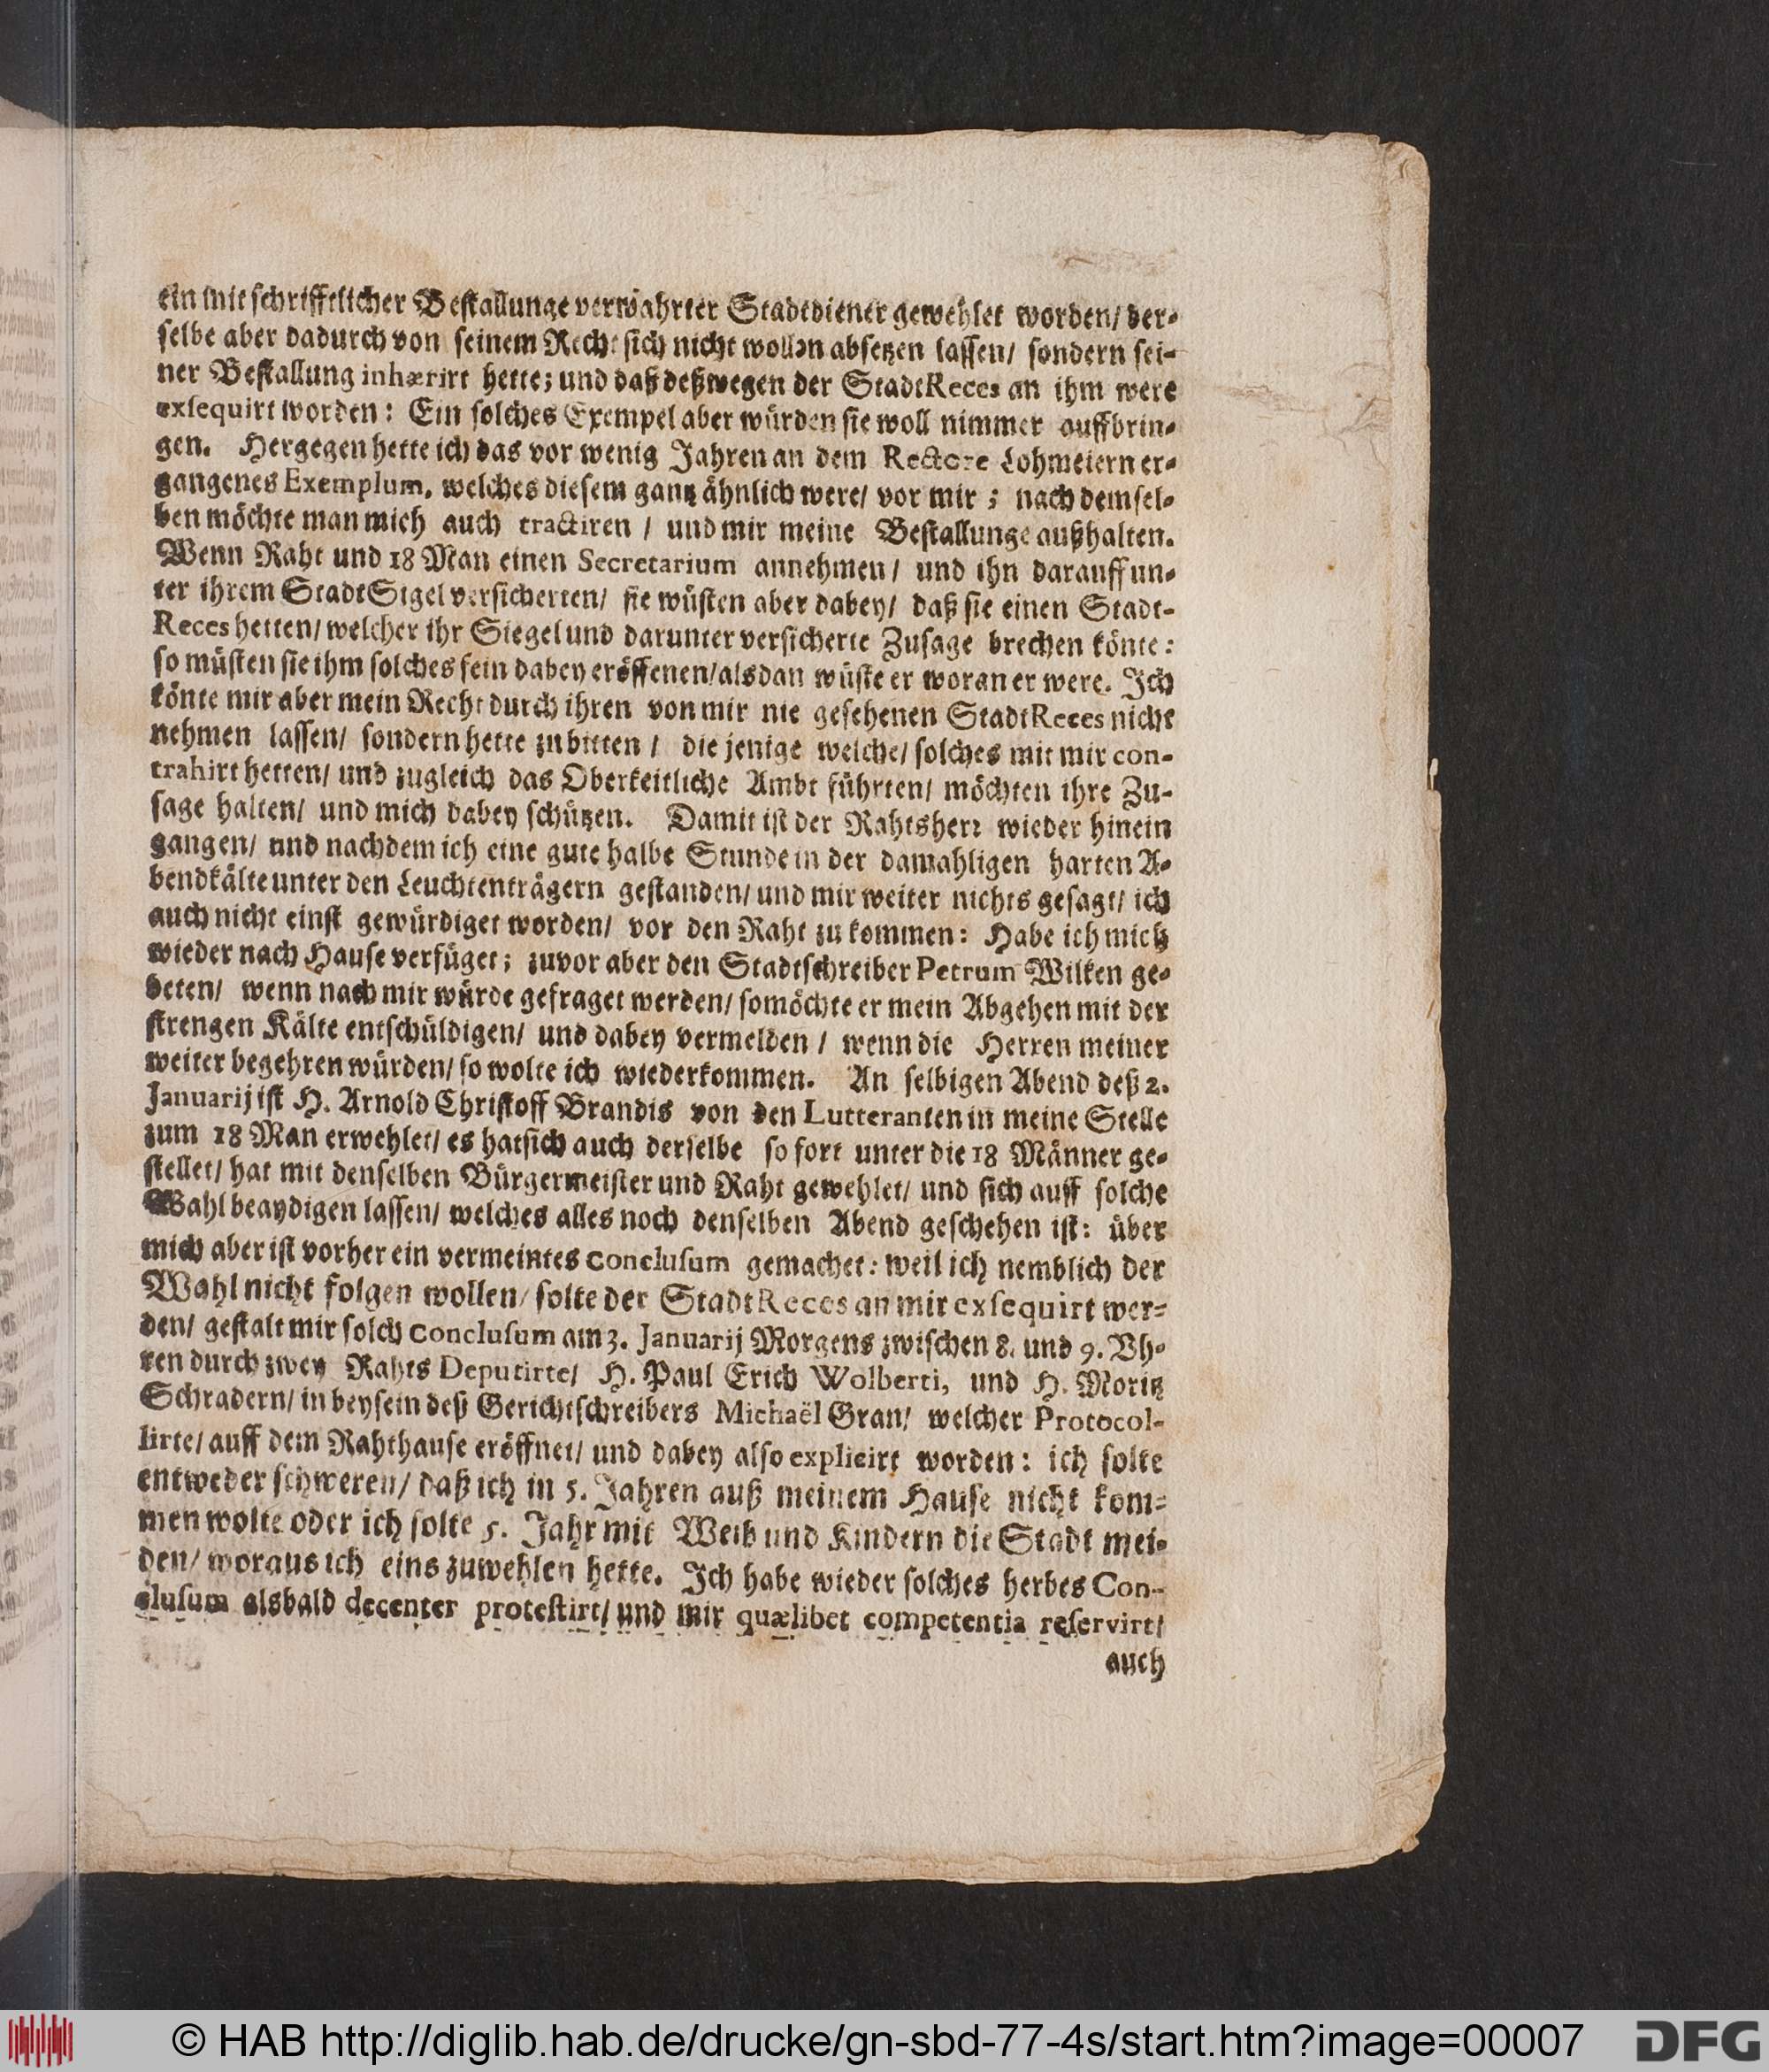 ein mit schrifftlicher Bestallunge verwahrter Stadtdiener gewehlet worden/ der-
selbe aber dadurch von seinem Recht sich nicht wollen absetzen lassen/ sondern sei-
ner Bestallung inhærirt hette; und daß deßwegen der StadtReces an ihm were
exsequirt worden: Ein solches Exempel aber würden sie woll nimmer auffbrin-
gen. Hergegen hette ich das vor wenig Jahren an dem Rectore Lohmeiern er-
gangenes Exemplum, welches diesem gantz ähnlich were/ vor mir; nach demsel-
ben möchte man mich auch tractiren / und mir meine Bestallunge außhalten.
Wenn Raht und 18 Man einen Secretarium annehmen/ und ihn darauff un-
ter ihrem StadtSigel versicherten/ sie wüsten aber dabey/ daß sie einen Stadt-
Reces hetten/ welcher ihr Siegel und darunter versicherte Zusage brechen könte:
so müsten sie ihm solches fein dabey eröffenen/ alsdan wüste er woran er were. Ich
könte mir aber mein Recht durch ihren von mir nie gesehenen StadtReces nicht
nehmen lassen/ sondern hette zu bitten / die jenige welche/ solches mit mir con-
trahirt hetten/ und zugleich das Oberkeitliche Ambt führten/ möchten ihre Zu-
sage halten/ und mich dabey schützen. Damit ist der Rahtsherr wieder hinein
gangen/ und nachdem ich eine gute halbe Stunde in der damahligen harten A-
bendkälte unter den Leuchtenträgern gestanden/ und mir weiter nichts gesagt/ ich
auch nicht einst gewürdiget worden/ vor den Raht zu kommen: Habe ich mich
wieder nach Hause verfüget; zuvor aber den Stadtschreiber Petrum Wilken ge-
beten/ wenn nach mir würde gefraget werden/ so möchte er mein Abgehen mit der
strengen Kälte entschüldigen/ und dabey vermelden / wenn die Herren meiner
weiter begehren würden/ so wolte ich wiederkommen. An selbigen Abend deß 2.
Januarij ist H. Arnold Christoff Brandis von den Lutteranten in meine Stelle
zum 18 Man erwehlet/ es hat sich auch derselbe so fort unter die 18 Männer ge-
stellet/ hat mit denselben Bürgermeister und Raht gewehlet/ und sich auff solche
Wahl beaydigen lassen/ welches alles noch denselben Abend geschehen ist: über
mich aber ist vorher ein vermeintes Conclusum gemachet: weil ich nemblich der
Wahl nicht folgen wollen/ solte der StadtReces an mir exsequirt wer-
den/ gestalt mir solch Conclusum am 3. Januarij Morgens zwischen 8. und 9. Vh-
ren durch zwey Rahts Deputirte/ H. Paul Erich Wolberti, und H. Moritz
Schradern/ in beysein deß Gerichtschreibers Michaël Gran/ welcher Protocol-
lirte/ auff dem Rahthause eröffnet/ und dabey also explicirt worden: ich solte
entweder schweren/ daß ich in 5. Jahren auß meinem Hause nicht kom-
men wolte oder ich solte 5. Jahr mit Weib und Kindern die Stadt mei-
den/ woraus ich eins zuwehlen hette. Ich habe wieder solches herbes Con-
clusum alsbald decenter protestirt/ und mir quælibet competentia reservirt/
auch
© HAB http://diglib.hab.de/drucke/gn-sbd-77-4s/start.htm?image=00007
DFG